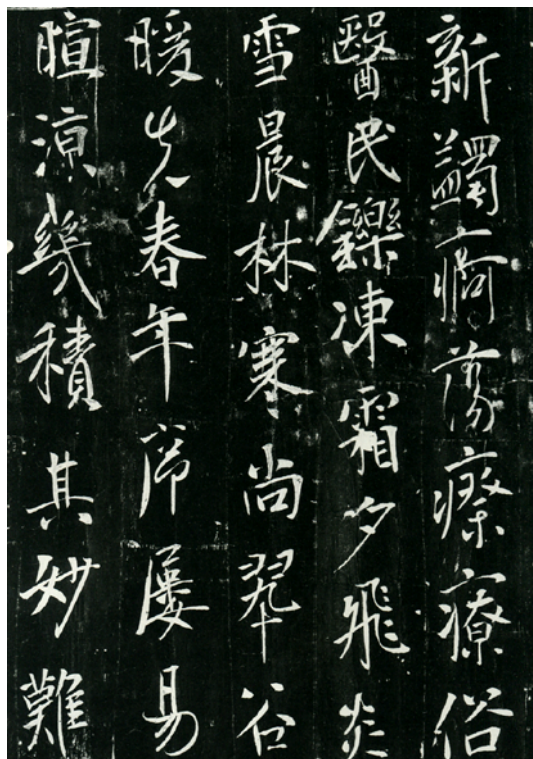 新蠲痾蕩瘵療俗
醫民鑠凍霜夕飛炎
雪晨林寒尚翠谷
暖先春年序屢易
暄涼幾積其妙難